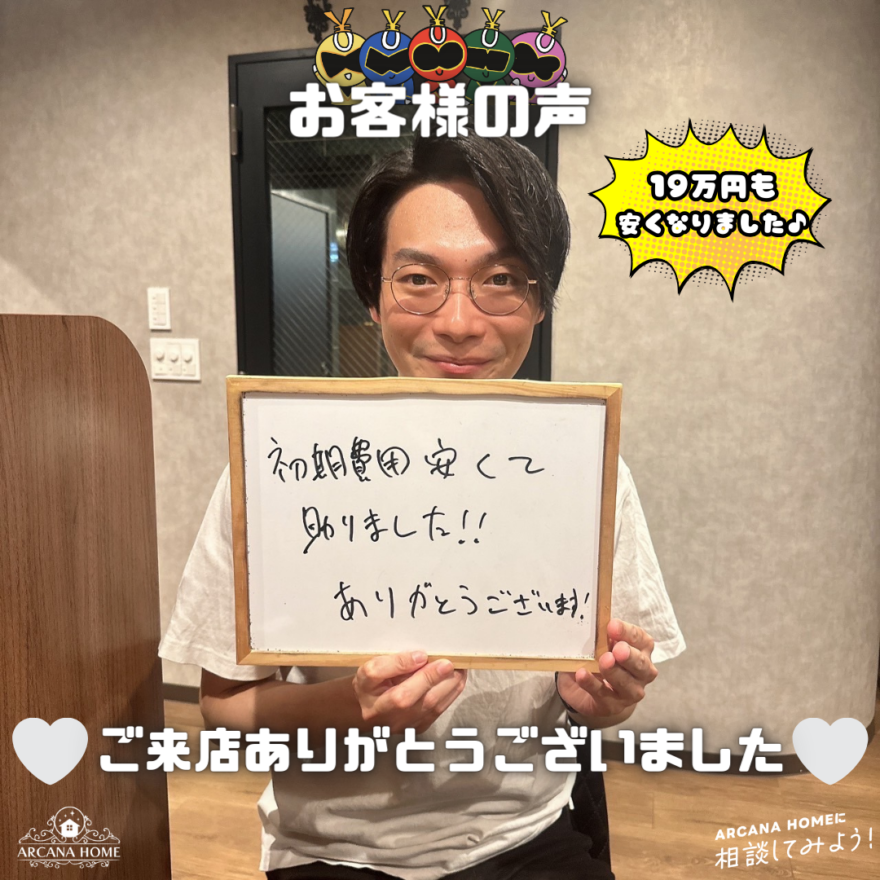 お客様の声
19万円も
安くなりました♪
初期費用安くて
助りました!!
ありがとうございます!
ご来店ありがとうございました
ARCANA HOME
ARCANA HOMEに
相談してみよう!